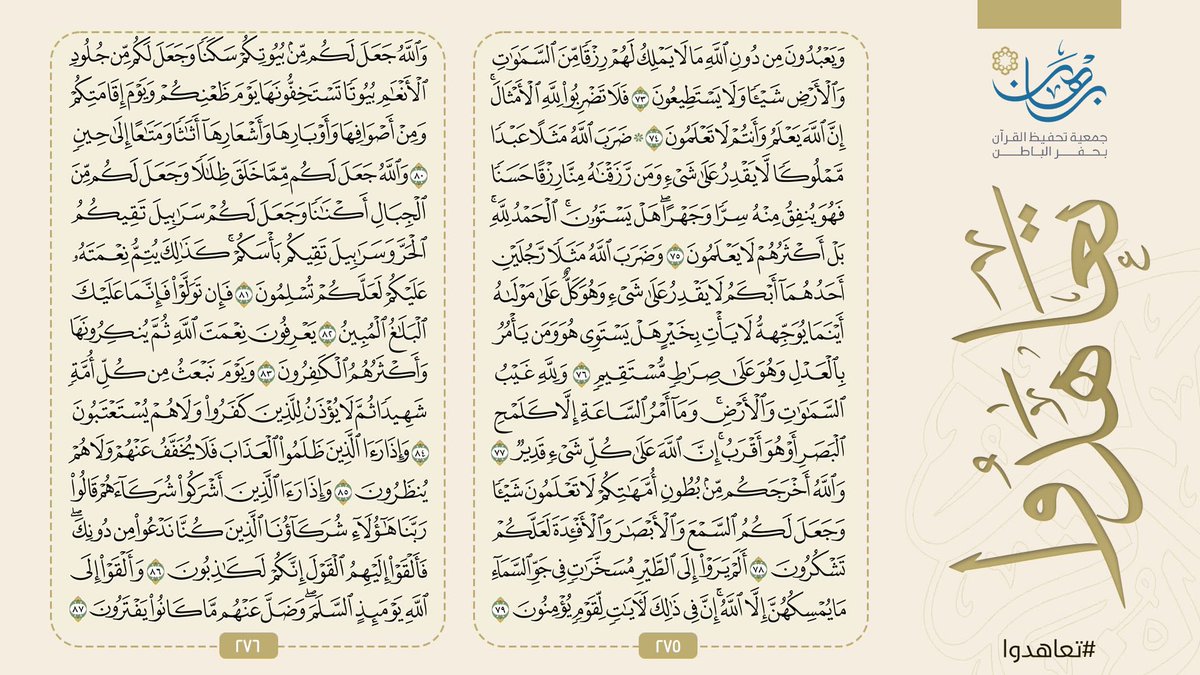 برهان
جمعية تحفيظ القرآن
بحفر الباطن
تعاهدوا
#تعاهدوا
وَيَعْبُدُونَ مِن دُونِ ٱللَّهِ مَا لَا يَمْلِكُ لَهُمْ رِزْقًا مِّنَ ٱلسَّمَٰوَٰتِ
وَٱلْأَرْضِ شَيْـًٔا وَلَا يَسْتَطِيعُونَ ٧٣ فَلَا تَضْرِبُوا۟ لِلَّهِ ٱلْأَمْثَالَ ۚ
إِنَّ ٱللَّهَ يَعْلَمُ وَأَنتُمْ لَا تَعْلَمُونَ ٧٤ * ضَرَبَ ٱللَّهُ مَثَلًا عَبْدًا
مَّمْلُوكًا لَّا يَقْدِرُ عَلَىٰ شَىْءٍ وَمَن رَّزَقْنَٰهُ مِنَّا رِزْقًا حَسَنًا
فَهُوَ يُنفِقُ مِنْهُ سِرًّا وَجَهْرًا ۖ هَلْ يَسْتَوُۥنَ ۚ ٱلْحَمْدُ لِلَّهِ ۚ
بَلْ أَكْثَرُهُمْ لَا يَعْلَمُونَ ٧٥ وَضَرَبَ ٱللَّهُ مَثَلًا رَّجُلَيْنِ
أَحَدُهُمَآ أَبْكَمُ لَا يَقْدِرُ عَلَىٰ شَىْءٍ وَهُوَ كَلٌّ عَلَىٰ مَوْلَىٰهُ
أَيْنَمَا يُوَجِّههُّ لَا يَأْتِ بِخَيْرٍ ۖ هَلْ يَسْتَوِى هُوَ وَمَن يَأْمُرُ
بِٱلْعَدْلِ ۙ وَهُوَ عَلَىٰ صِرَٰطٍ مُّسْتَقِيمٍ ٧٦ وَلِلَّهِ غَيْبُ
ٱلسَّمَٰوَٰتِ وَٱلْأَرْضِ ۚ وَمَآ أَمْرُ ٱلسَّاعَةِ إِلَّا كَلَمْحِ
ٱلْبَصَرِ أَوْ هُوَ أَقْرَبُ ۚ إِنَّ ٱللَّهَ عَلَىٰ كُلِّ شَىْءٍ قَدِيرٌ ٧٧
وَٱللَّهُ أَخْرَجَكُم مِّنۢ بُطُونِ أُمَّهَٰتِكُمْ لَا تَعْلَمُونَ شَيْـًٔا
وَجَعَلَ لَكُمُ ٱلسَّمْعَ وَٱلْأَبْصَٰرَ وَٱلْأَفْـِٔدَةَ ۙ لَعَلَّكُمْ
تَشْكُرُونَ ٧٨ أَلَمْ يَرَوْا۟ إِلَى ٱلطَّيْرِ مُسَخَّرَٰتٍ فِى جَوِّ ٱلسَّمَآءِ
مَا يُمْسِكُهُنَّ إِلَّا ٱللَّهُ ۗ إِنَّ فِى ذَٰلِكَ لَءَايَٰتٍ لِّقَوْمٍ يُؤْمِنُونَ ٧٩
٢٧٥
وَٱللَّهُ جَعَلَ لَكُم مِّنۢ بُيُوتِكُمْ سَكَنًا وَجَعَلَ لَكُم مِّن جُلُودِ
ٱلْأَنْعَٰمِ بُيُوتًا تَسْتَخِفُّونَهَا يَوْمَ ظَعْنِكُمْ وَيَوْمَ إِقَامَتِكُمْ ۙ
وَمِنْ أَصْوَافِهَا وَأَوْبَارِهَا وَأَشْعَارِهَآ أَثَٰثًا وَمَتَٰعًا إِلَىٰ حِينٍ
٨٠ وَٱللَّهُ جَعَلَ لَكُم مِّمَّا خَلَقَ ظِلَٰلًا وَجَعَلَ لَكُم مِّنَ
ٱلْجِبَالِ أَكْنَٰنًا وَجَعَلَ لَكُمْ سَرَٰبِيلَ تَقِيكُمُ
ٱلْحَرَّ وَسَرَٰبِيلَ تَقِيكُم بَأْسَكُمْ ۚ كَذَٰلِكَ يُتِمُّ نِعْمَتَهُۥ
عَلَيْكُمْ لَعَلَّكُمْ تُسْلِمُونَ ٨١ فَإِن تَوَلَّوْا۟ فَإِنَّمَا عَلَيْكَ
ٱلْبَلَٰغُ ٱلْمُبِينُ ٨٢ يَعْرِفُونَ نِعْمَتَ ٱللَّهِ ثُمَّ يُنكِرُونَهَا
وَأَكْثَرُهُمُ ٱلْكَٰفِرُونَ ٨٣ وَيَوْمَ نَبْعَثُ مِن كُلِّ أُمَّةٍ
شَهِيدًا ثُمَّ لَا يُؤْذَنُ لِلَّذِينَ كَفَرُوا۟ وَلَا هُمْ يُسْتَعْتَبُونَ
٨٤ وَإِذَا رَءَا ٱلَّذِينَ ظَلَمُوا۟ ٱلْعَذَابَ فَلَا يُخَفَّفُ عَنْهُمْ وَلَا هُمْ
يُنظَرُونَ ٨٥ وَإِذَا رَءَا ٱلَّذِينَ أَشْرَكُوا۟ شُرَكَآءَهُمْ قَالُوا۟
رَبَّنَا هَٰٓؤُلَآءِ شُرَكَآؤُنَا ٱلَّذِينَ كُنَّا نَدْعُوا۟ مِن دُونِكَ ۖ
فَأَلْقَوْا۟ إِلَيْهِمُ ٱلْقَوْلَ إِنَّكُمْ لَكَٰذِبُونَ ٨٦ وَأَلْقَوْا۟ إِلَى
ٱللَّهِ يَوْمَئِذٍ ٱلسَّلَمَ ۖ وَضَلَّ عَنْهُم مَّا كَانُوا۟ يَفْتَرُونَ ٨٧
٢٧٦